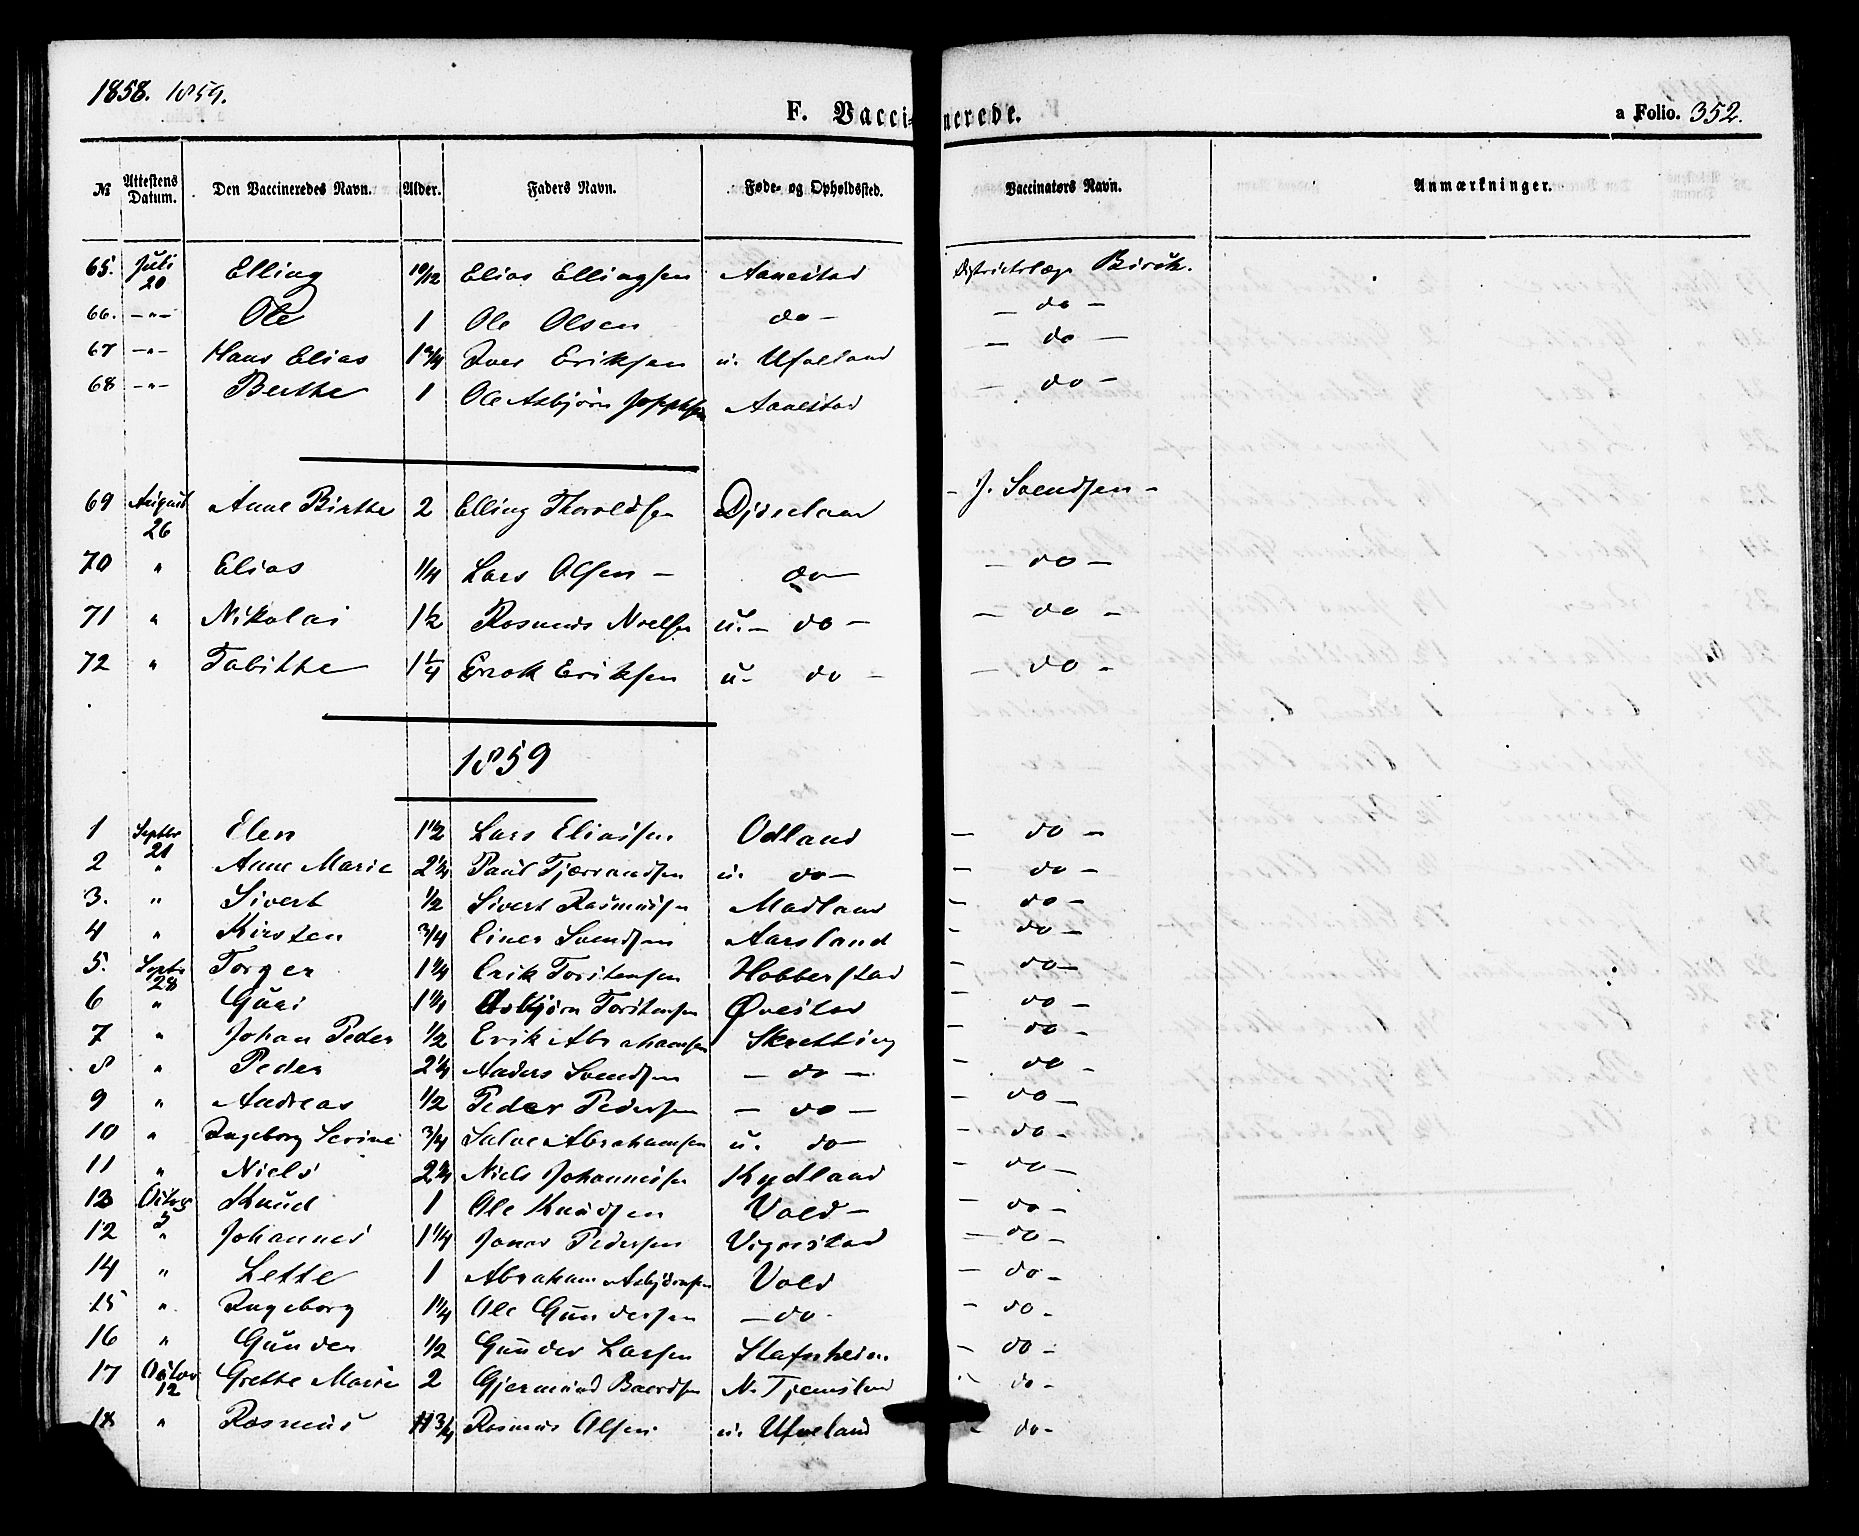 1858. 1859.
F. Vaccinerede.
a Folio. 352.
№ Attestens Datum. Den Vaccineredes Navn. Alder. Faders Navn. Føde- og Opholdssted. Vaccinators Navn. Anmærkninger.
65. Juli 20 Elling 10/12 Elias Ellingsen Aanestad Districtslæge Birch.
66. -"- Ole 1 Ole Olsen do - - do -
67 -"- Hans Elias 1 3/4 Iver Eriksen u. Ueland - do -
68 -"- Berthe 1 Ole Asbjørn Aanestad - do -
69 August 26 Anne Birthe 2 Elling Thoroldsen - J. Svendsen -
70 " Elias 1/4 Lars Olsen - do - - do -
71 " Nikolai 1 1/2 Rasmus u. - do - - do -
72 " Tabithe 1 1/4 Enok Eriksen u. do - - do -
1859
1 Septbr 21 Elen 1 1/2 Lars Eliassen Odland - do -
2 " Anne Marie 2 1/4 Paul Tjærrandsen u. do - - do -
3. " Sivert 1/2 Sivert Rasmussen Madland - do -
4 " Kirsten 3/4 Einer Svendsen Aarsland - do -
5. Septbr 28 Torger 1 1/4 Erik Torstensen Hobberstad - do -
6 " Guri 1 1/4 Asbjørn Torstensen Øvestad - do -
7 " Johan Peder 1/2 Erik Abrahamsen Skretting - do -
8 " Peder 2 1/4 Anders Svendsen - do - - do -
9 " Andreas 1/2 Peder Pedersen - do - - do -
10 " Ingeborg Serine 3/4 Salve Abrahamsen u. do - - do -
11 " Niels 2 3/4 Niels Johannessen Kydland - do -
12 Octbr 5 Knud 1 Ole Knudsen Vold - - do -
12 " Johannes 1 1/4 Jonas Pedersen Vigrestad - do -
14 " Lette 1 Abraham Asbjørnsen Vold - do -
15 " Ingeborg 1 1/4 Ole Gundersen - do - - do -
16 " Gunder 1/2 Gunder Larsen Stafnheim - do -
17 Octbr 12 Grethe Marie 2 Gjermund Baardsen N. Tjemsland - do -
18 " Rasmus 3/4 Rasmus Olsen u. Ueland - do -